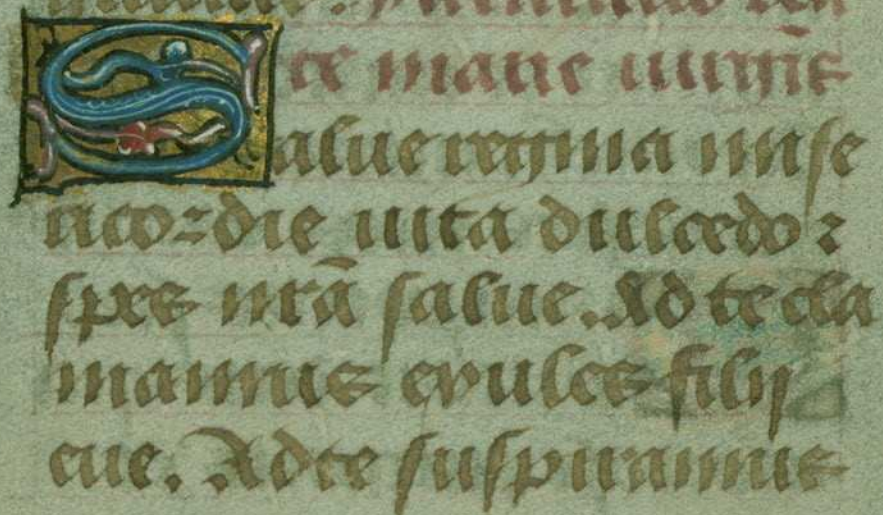 te marie uirgīs
Salue regina mise
ricordie uita dulcedo ⁊
spes nrā salue. Ad te cla
mamus exules filij
eue. Ad te suspiramus